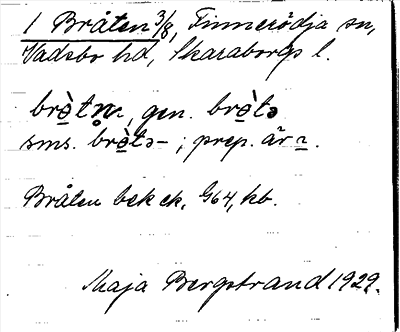 1 Bråten 3/8, Finnerödja sn,
Vadsbo hd, Skaraborgs l.
brò̱tn̥, gen. brò̱tə
sms. brò̱tə- ; prep. är
Bråten bck ek, 864, kb.
Maja Bergstrand 1929.